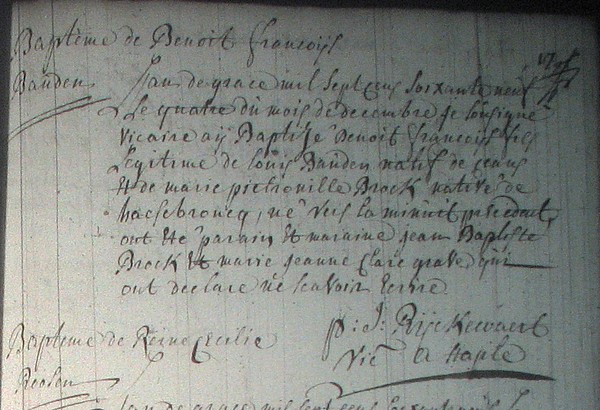 Baptême de Benoit francoijs
Bauden
Lan de grace mil sept cens soixante neuf
Le quatre du mois de decembre je soussigne
vicaire aij Baptisé Benoit francois fils
Legitime de louis Bauden natif de ceans
et de marie pietronille Brock native de
hasebroucq, né vers la minuit precedent,
ont été parain et maraine jean Baptiste
Brock et marie jeanne Clare grave qui
ont declaré ne scavoir ecrire
Baptême de Reine Cecilie
p: J: Rijckewaert
Vic a Staple
Lan de grace mil sept cens soixante